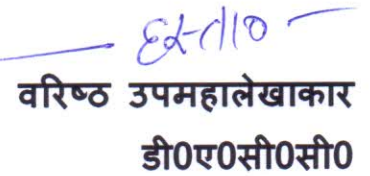 हस्ता०
वरिष्ठ उपमहालेखाकार
डी0ए0सी0सी0